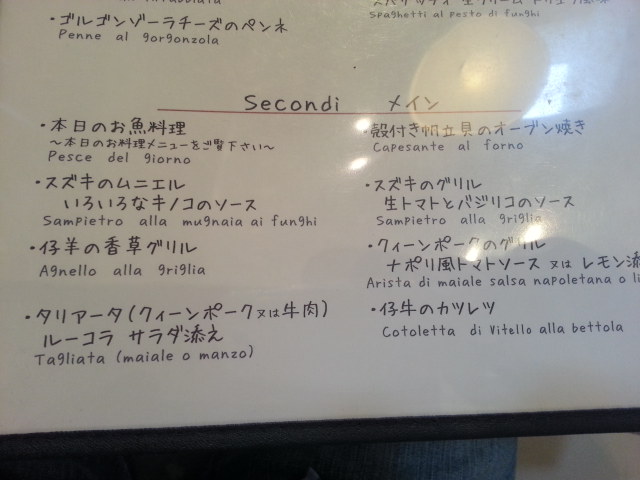 ・ゴルゴンゾーラチーズのペンネ
Penne al gorgonzola
Spaghetti al pesto di funghi
Secondi メイン
・本日のお魚料理
〜本日のお料理メニューをご覧下さい〜
Pesce del giorno
・スズキのムニエル
いろいろなキノコのソース
Sampietro alla mugnaia ai funghi
・仔羊の香草グリル
Agnello alla griglia
・タリアータ(クィーンポーク又は牛肉)
ルーコラ サラダ添え
Tagliata (maiale o manzo)
・殻付き帆立貝のオーブン焼き
Capesante al forno
・スズキのグリル
生トマトとバジリコのソース
Sampietro alla griglia
・クィーンポークのグリル
ナポリ風トマトソース 又は レモン添
Arista di maiale salsa napoletana o li
・仔牛のカツレツ
Cotoletta di Vitello alla bettola